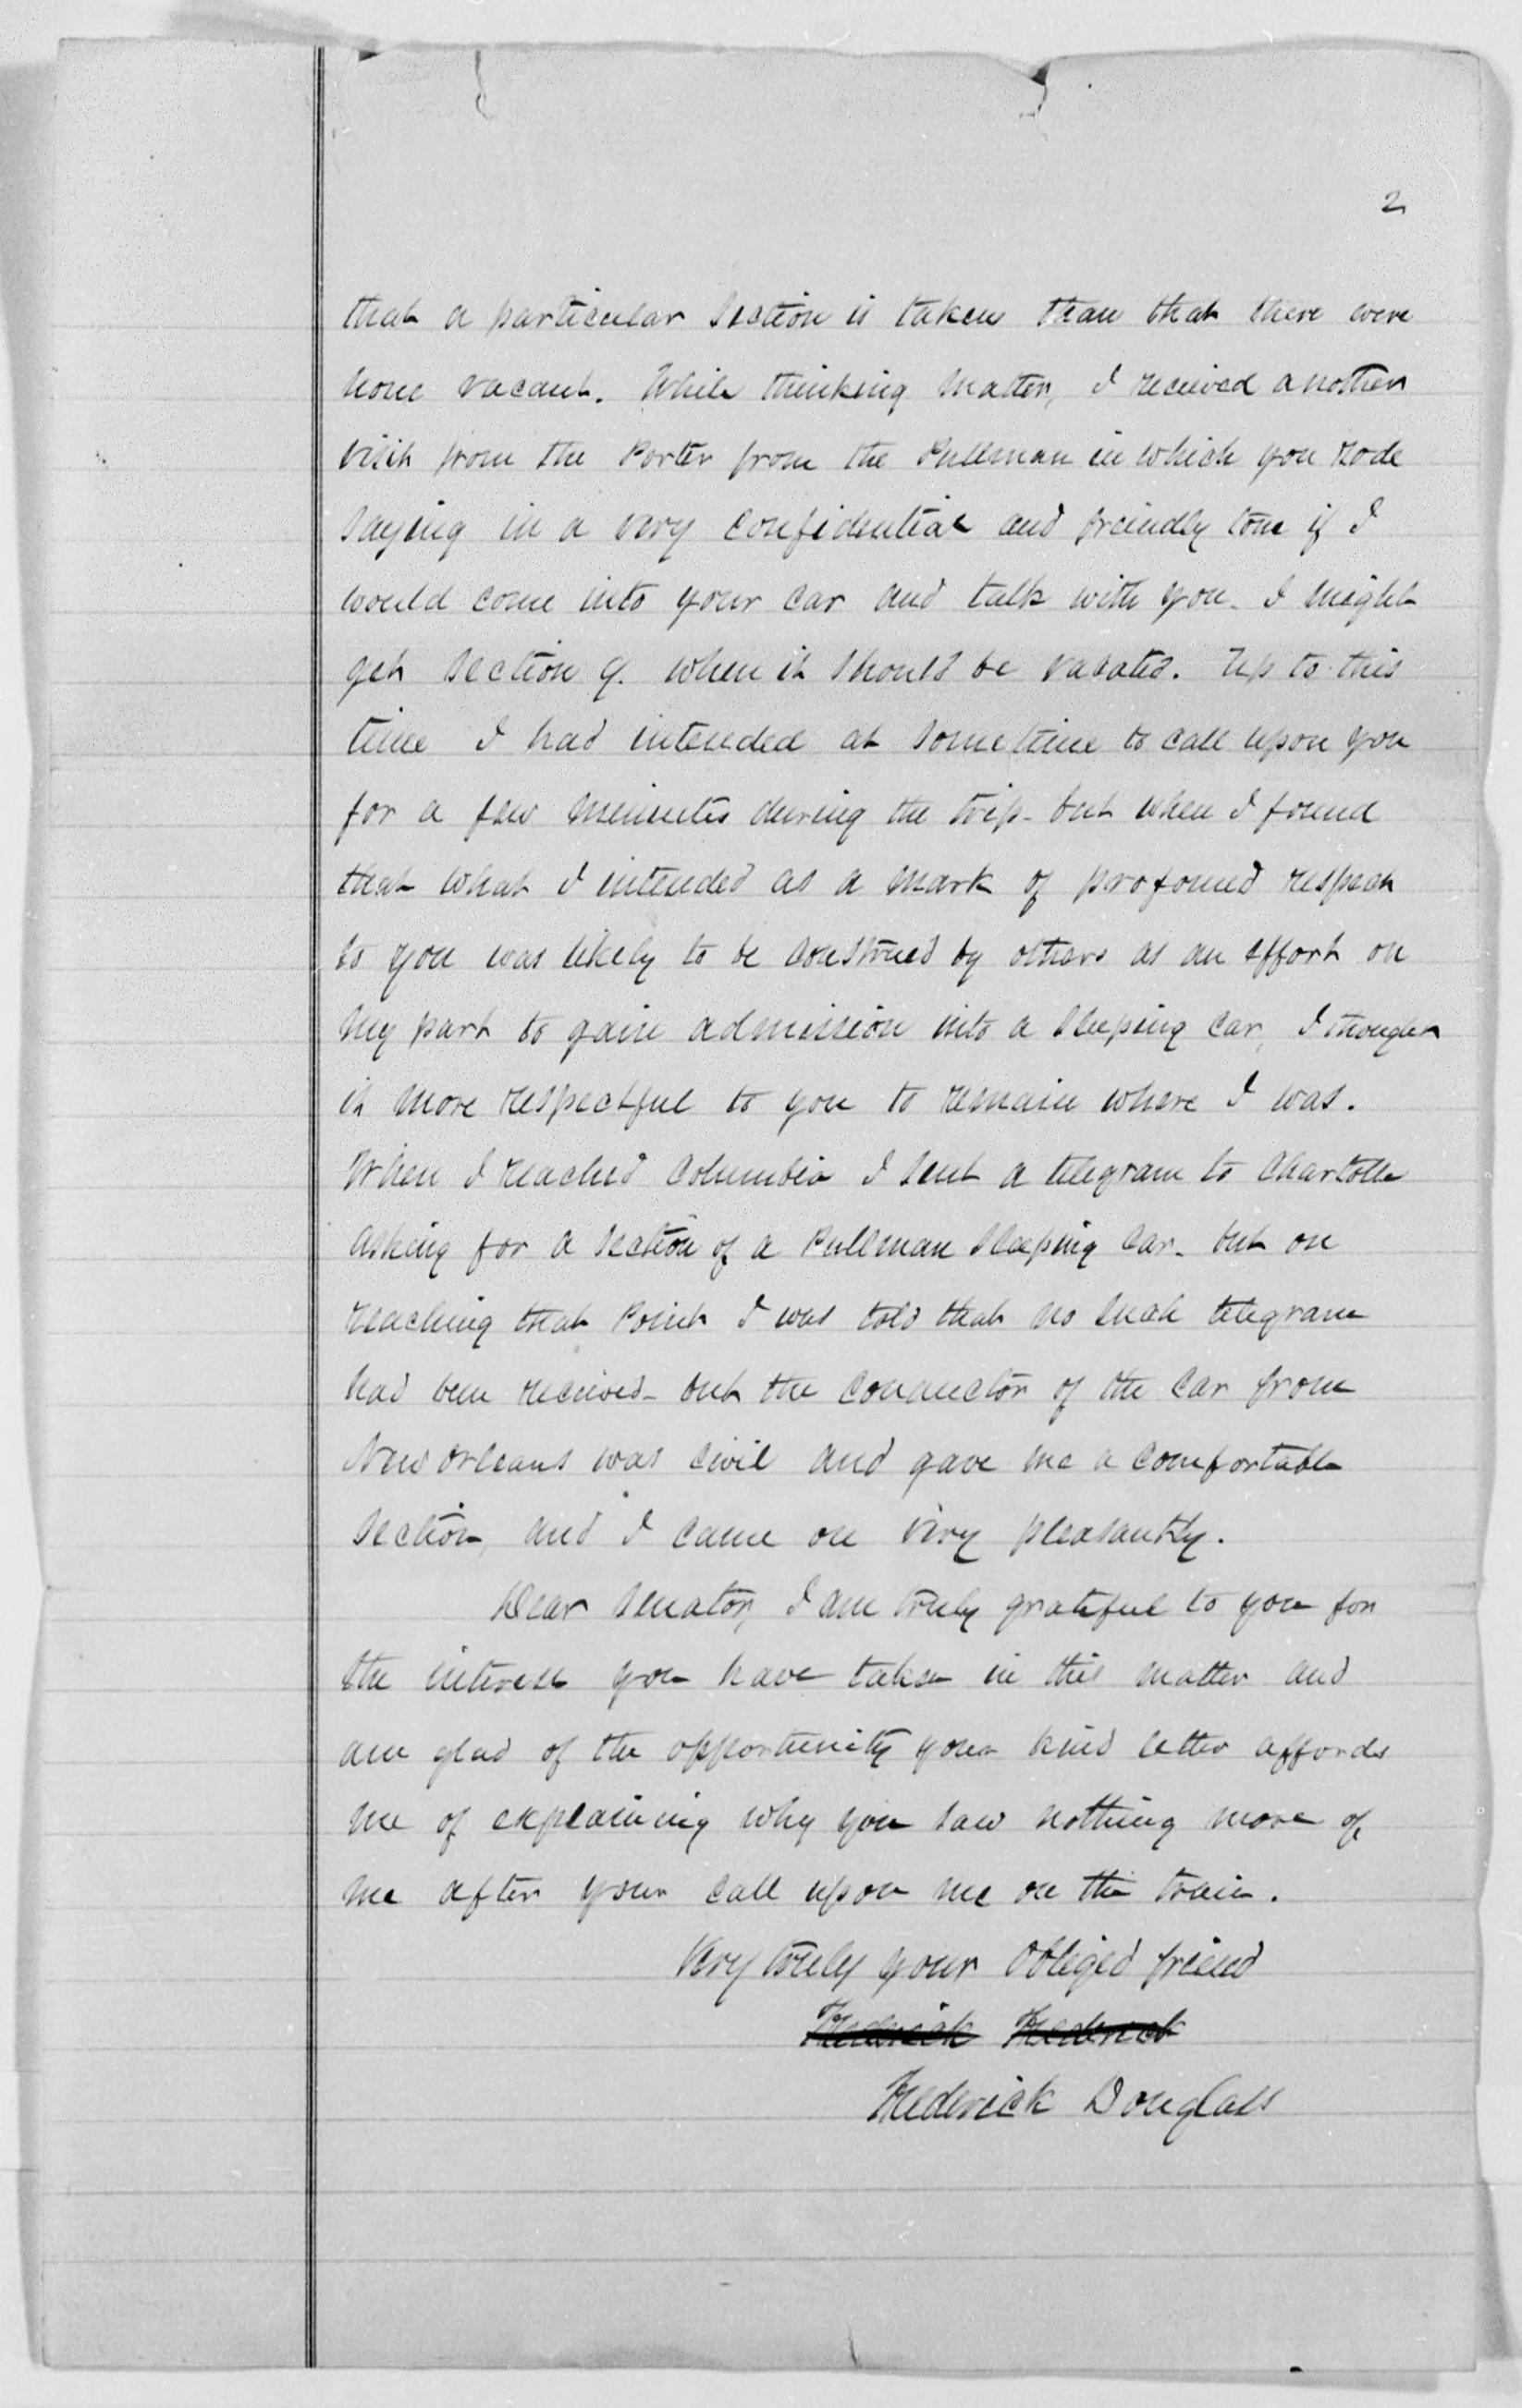 2
that a particular section is taken than that there were
none vacant. While thinking matter, I received another
visit from the Porter from the Pullman in which you rode
saying in a very confidential and freindly tone if I
would come into your car and talk with you. I might
get section 9. when it should be vacated. Up to this
time I had intended at some time to call upon you
for a few minutes during the trip - but when I found
that what I intended as a mark of profound respect
to you was likely to be construed by others as an effort on
my part to gain admission into a sleeping car, I thought
it more respectful to you to remain where I was.
When I reached Columbia I sent a telegram to Charlotte
asking for a section of a Pullman sleeping car - but on
reaching that point I was told that no such telegram
had been received - but the conductor of the car from
New Orleans was civil and gave me a comfortable
section, and I came on very pleasantly.
Dear Senator, I am truly grateful to you for
the interest you have taken in this matter and
am glad of the opportunity your kind letter affords
me of explaining why you saw nothing more of
me after your call upon me on the train.
Very truly your obliged friend
Frederick Frederick
Frederick Douglass